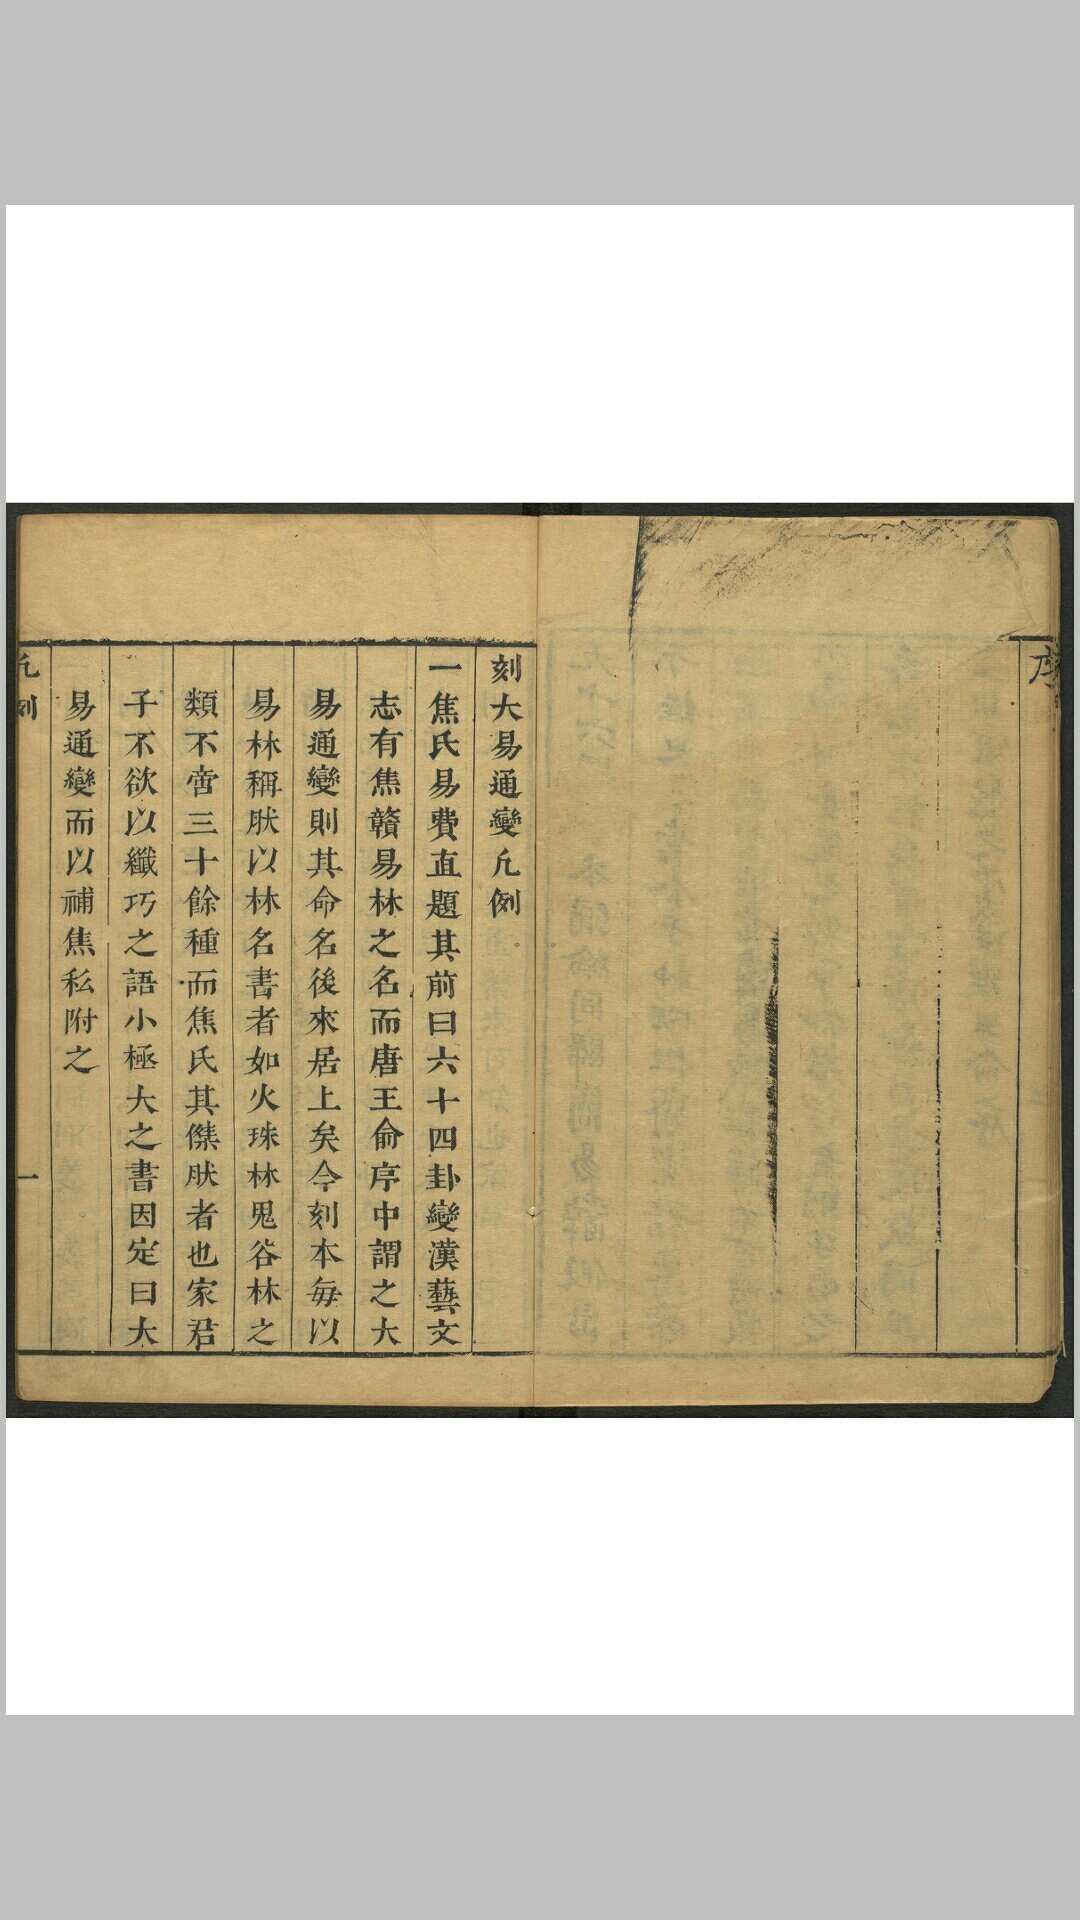 序
刻大易通變凡例
一焦氏易費直題其前曰六十四卦變漢藝文
志有焦贛易林之名而唐王俞序中謂之大
易通變則其命名後來居上矣今刻本每以
易林稱肰以林名書者如火珠林鬼谷林之
類不啻三十餘種而焦氏其傑肰者也家君
子不欲以纖巧之語小極大之書因定曰大
易通變而以補焦私附之
凡例
一